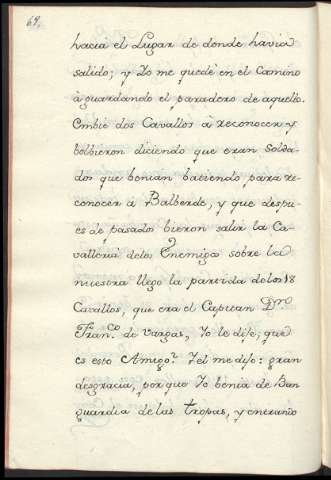 69.
hacia el Lugar de donde havia
salido; y Yo me quedè en el Camino
à guardando el paradero de aquello.
Embiè dos Cavallos à reconocer y
bolbieron diciendo que eran Solda-
dos que benian batiendo para re-
conocer à Balberde, y que despu-
es de pasados bieron salir la Ca-
vallería delos Enemigos sobre la
nuestra llego la partida delos 18
Cavallos, que era el Capitan Dⁿ
Franᶜᵒ de Vargas, Yo le dije, que
es esto Amigo? Yel me dijo: gran
desgracia, porque Yo benia de Ban
guardia de las tropas, y entrando